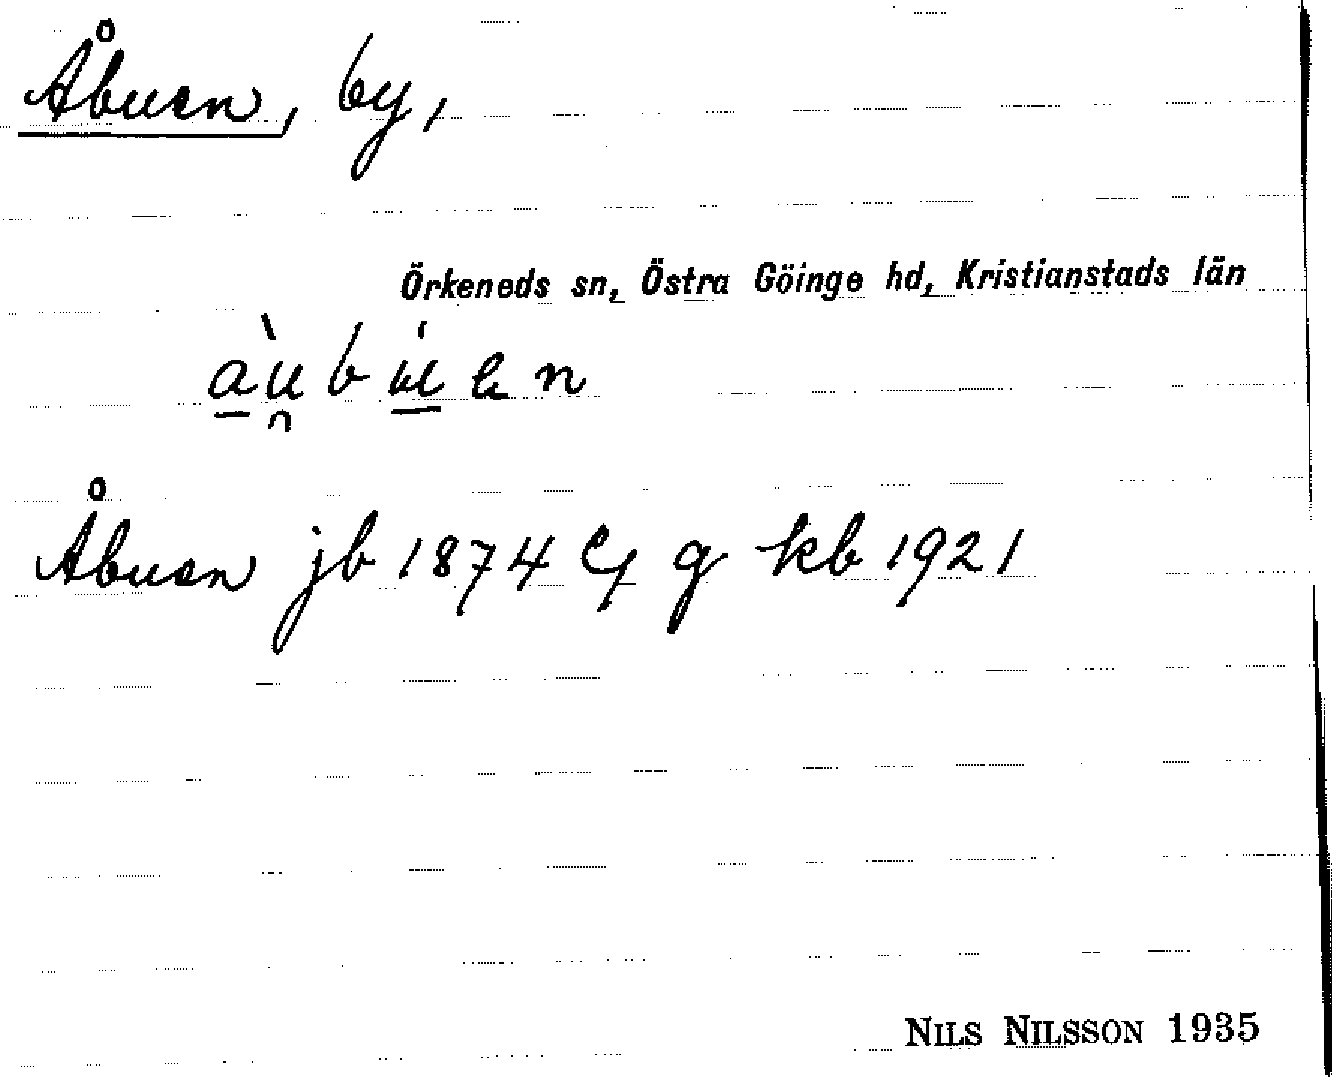 Åbuen, by,
Örkeneds sn, Östra Göinge hd, Kristianstads län
Åbuen jb 1874 kb 1921
NILS NILSSON 1935